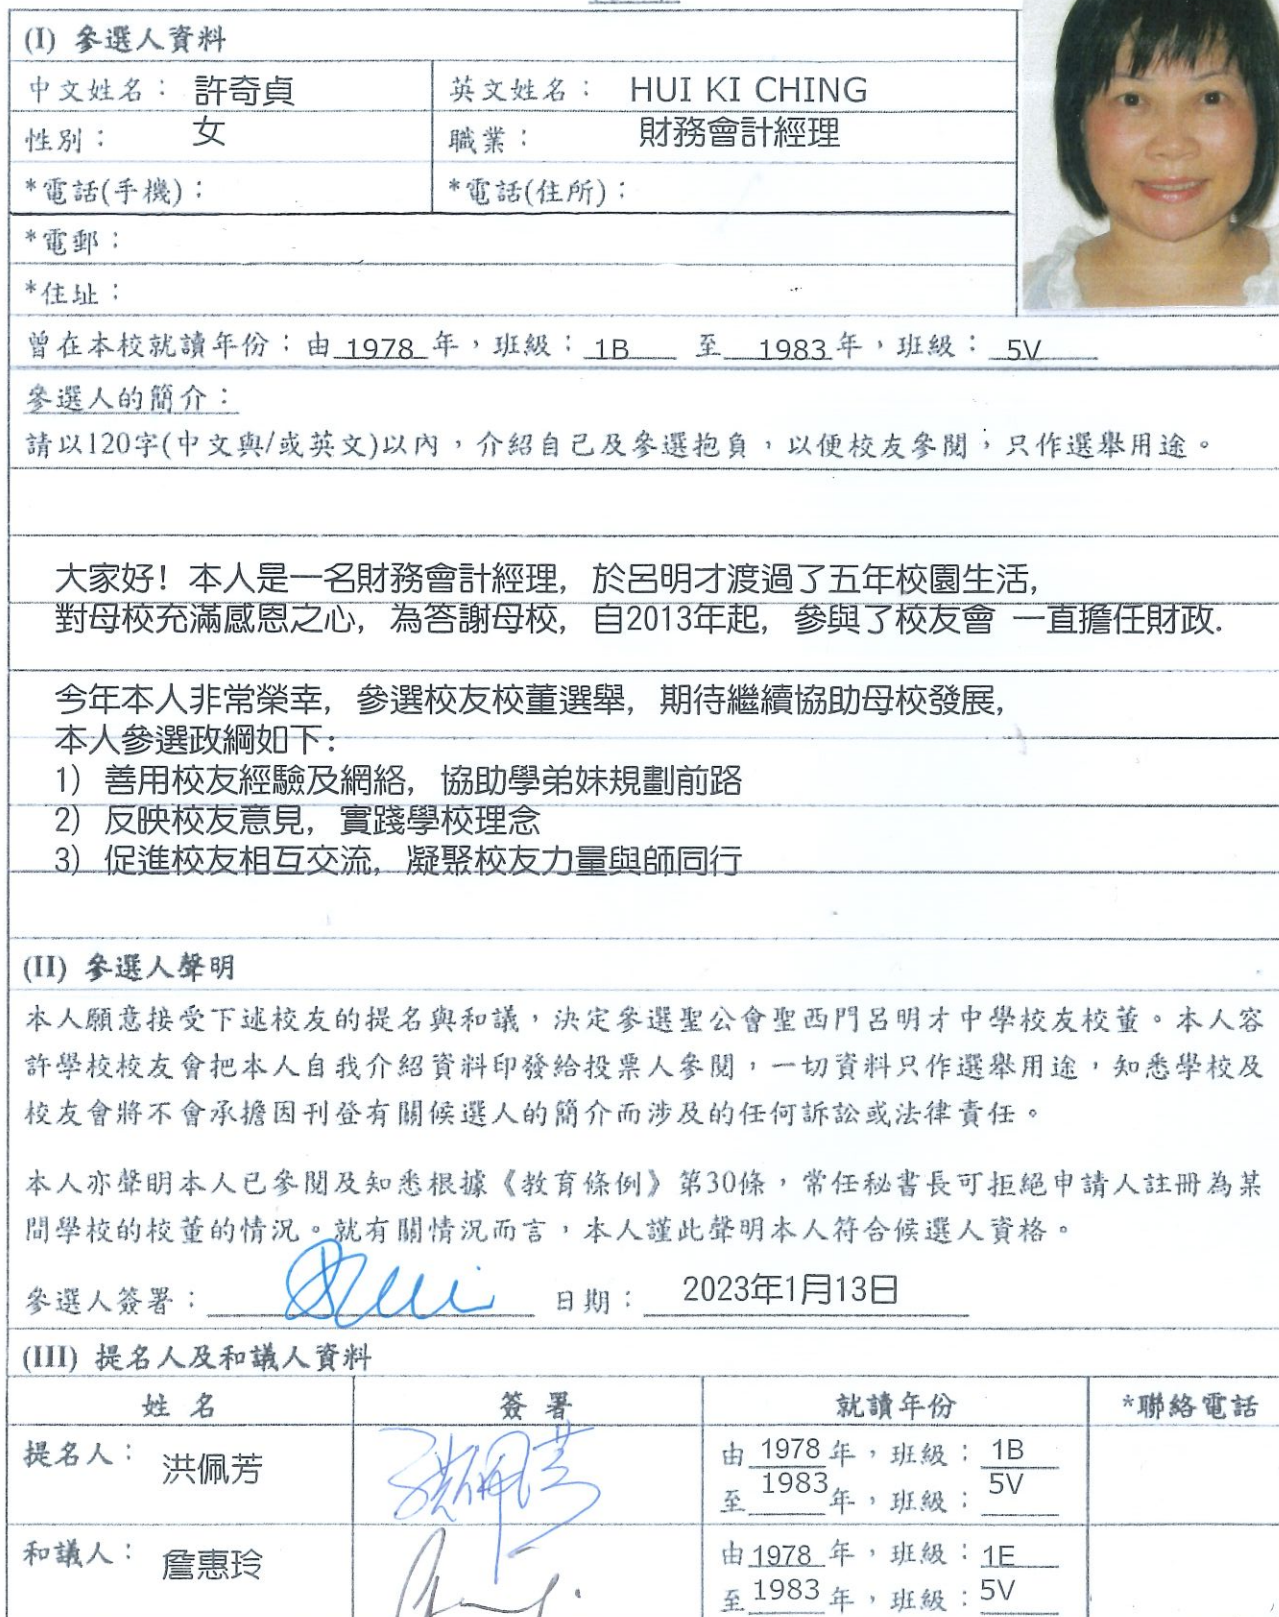 (I) 參選人資料
中文姓名： 許奇貞 英文姓名： HUI KI CHING
性別： 女 職業： 財務會計經理
*電話(手機)： *電話(住所)：
*電郵：
*住址：
曾在本校就讀年份：由 1978 年，班級： 1B 至 1983 年，班級： 5V
參選人的簡介：
請以120字(中文與/或英文)以內，介紹自己及參選抱負，以便校友參閱，只作選舉用途。
大家好! 本人是一名財務會計經理, 於呂明才渡過了五年校園生活,
對母校充滿感恩之心, 為答謝母校, 自2013年起, 參與了校友會 一直擔任財政.
今年本人非常榮幸, 參選校友校董選舉, 期待繼續協助母校發展,
本人參選政綱如下:
1) 善用校友經驗及網絡, 協助學弟妹規劃前路
2) 反映校友意見, 實踐學校理念
3) 促進校友相互交流, 凝聚校友力量與師同行
(II) 參選人聲明
本人願意接受下述校友的提名與和議，決定參選聖公會聖西門呂明才中學校友校董。本人容
許學校校友會把本人自我介紹資料印發給投票人參閱，一切資料只作選舉用途，知悉學校及
校友會將不會承擔因刊登有關候選人的簡介而涉及的任何訴訟或法律責任。
本人亦聲明本人已參閱及知悉根據《教育條例》第30條，常任秘書長可拒絕申請人註冊為某
間學校的校董的情況。就有關情況而言，本人謹此聲明本人符合候選人資格。
參選人簽署： 日期： 2023年1月13日
(III) 提名人及和議人資料
姓 名 簽 署 就讀年份 *聯絡電話
提名人： 洪佩芳 洪佩芳 由 1978 年，班級： 1B
至 1983 年，班級： 5V
和議人： 詹惠玲 由 1978 年，班級： 1E
至 1983 年，班級： 5V